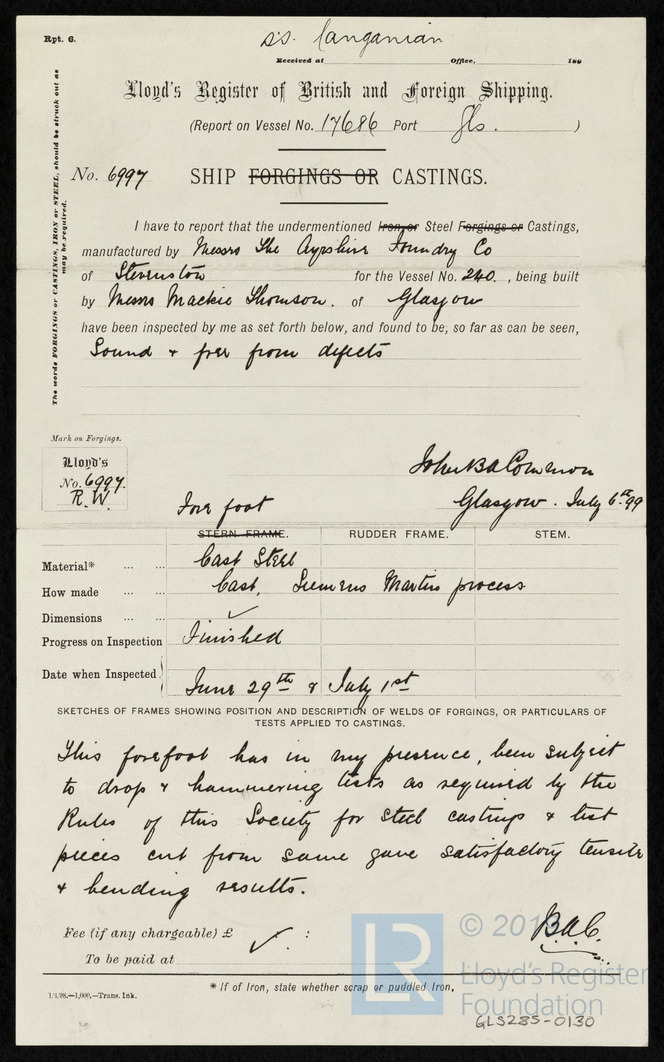 Rpt. 6.
s.s. Langanian
Received at Office, 189
Lloyd's Register of British and Foreign Shipping.
(Report on Vessel No. 17686 Port Gls. )
No. 6997 SHIP FORGINGS OR CASTINGS.
The words FORGINGS or CASTINGS, IRON or STEEL, should be struck out as
may be required.
I have to report that the undermentioned Iron or Steel Forgings or Castings,
manufactured by Messrs The Ayrshire Foundry Co
of Stevenston for the Vessel No. 240. , being built
by Messrs Mackie Thomson. of Glasgow
have been inspected by me as set forth below, and found to be, so far as can be seen,
Sound & free from defects
Mark on Forgings.
Lloyd's
No. 6997.
R.W.
John B A Common
Glasgow. July 6th. 99
Fore foot
STERN FRAME. RUDDER FRAME. STEM.
Material* ... ... Cast Steel
How made ... ... Cast, Siemens Martin process
Dimensions ... ... ✓
Progress on Inspection Finished
Date when Inspected June 29th & July 1st
SKETCHES OF FRAMES SHOWING POSITION AND DESCRIPTION OF WELDS OF FORGINGS, OR PARTICULARS OF
TESTS APPLIED TO CASTINGS.
This forefoot has in my presence, been subject
to drop & hammering tests as required by the
Rules of this Society for steel castings & test
pieces cut from same gave satisfactory tensile
& bending results.
B.A.C.
Fee (if any chargeable) £ ✓ . :
To be paid at
* If of Iron, state whether scrap or puddled Iron.
1/1/98.—1,000.—Trans. Ink.
LR
© 201
Lloyd's Register
Foundation
GLS285-0130